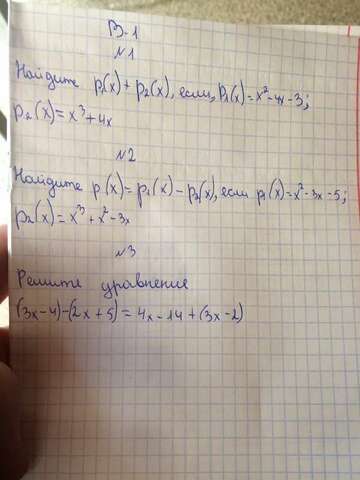 В-1
№1
Найдите p₁(x) + p₂(x), если, P₁(x) = x² - 4x - 3;
p₂(x) = x³ + 4x
№2
Найдите p(x) = p₁(x) - p₂(x), если p₁(x) = x² - 3x - 5;
p₂(x) = x³ + x² - 3x
№3
Решите уравнение
(3x - 4) - (2x + 5) = 4x - 14 + (3x - 2)